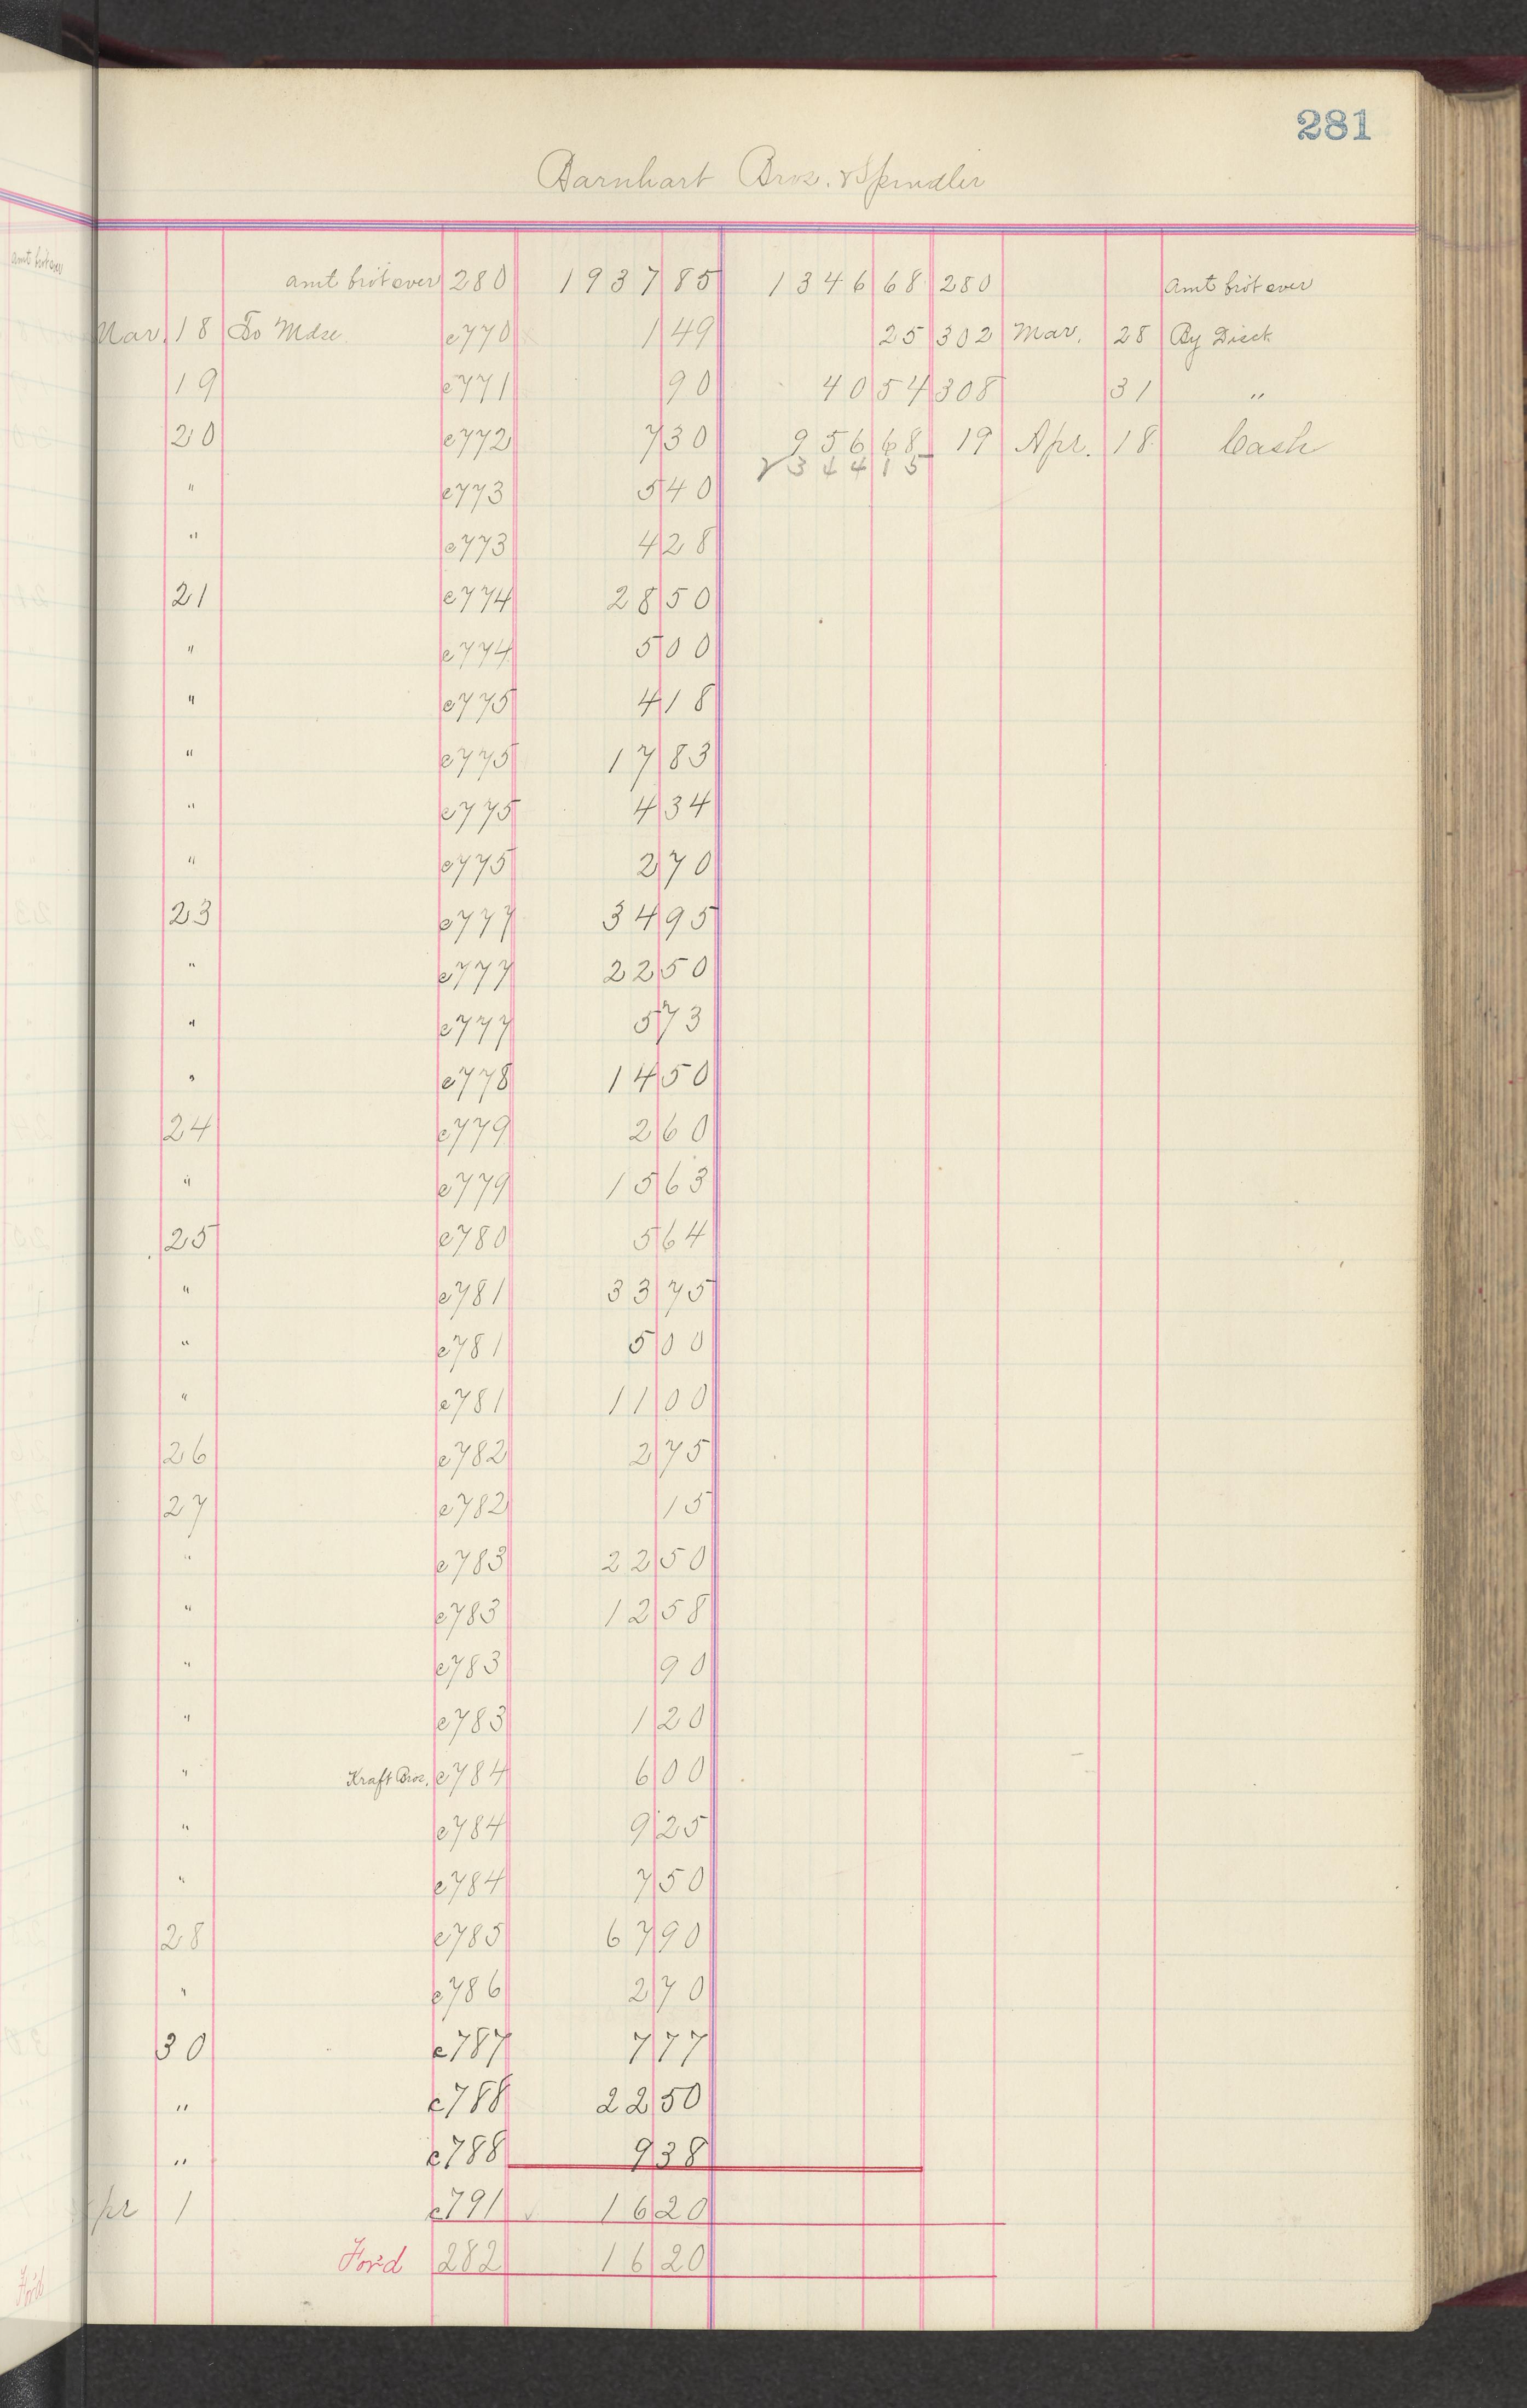 281
Barnhart Bros. & Spindler
amt brot over 280 1937 85 1346 68 280 amt brot over
Mar. 18 To Mdse. c770 1 49 25 302 Mar. 28 By Disct.
19 c771 90 40 54 308 31 "
20 c772 7 30 956 68 19 Apr. 18 Cash
" c773 5 40 2344 15
" c773 4 28
21 c774 28 50
" c774 5 00
" c775 4 18
" c775 17 83
" c775 4 34
" c775 2 70
23 c777 34 95
" c777 22 50
" c777 5 73
" c778 14 50
24 c779 2 60
" c779 15 63
25 c780 5 64
" c781 33 75
" c781 5 00
" c781 11 00
26 c782 2 75
27 c782 15
" c783 22 50
" c783 12 58
" c783 90
" c783 1 20
" Kraft Bros. c784 6 00
" c784 9 25
" c784 7 50
28 c785 67 90
" c786 2 70
30 c787 7 77
" c788 22 50
" c788 9 38
pr 1 c791 16 20
For'd 282 16 20
amt brot over
For'd